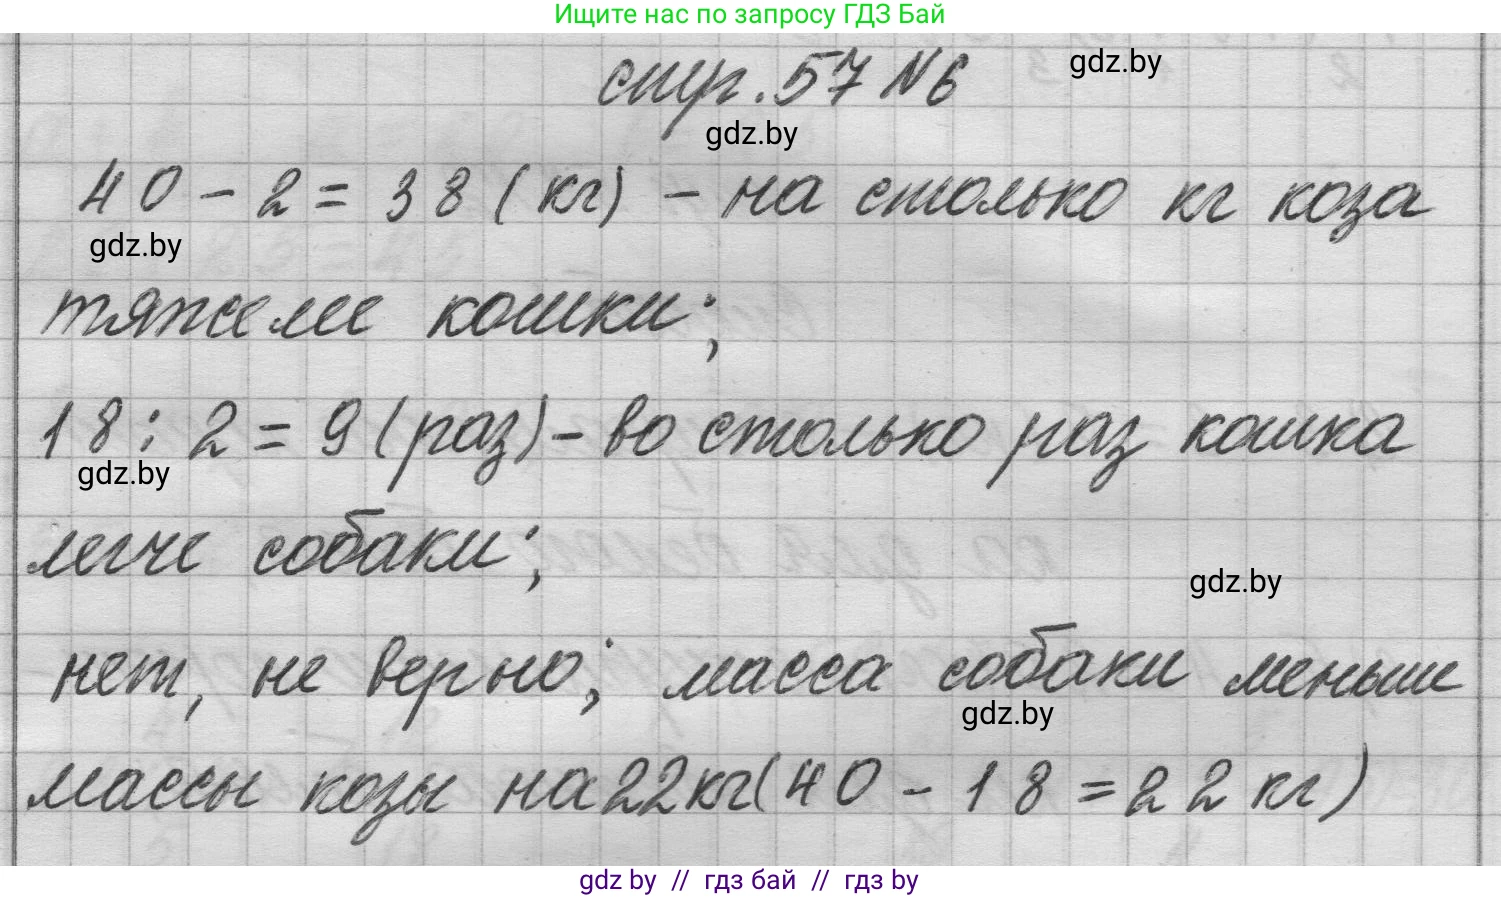 Ищите нас по запросу ГДЗ Бай
стр. 57 №6
gdz.by
gdz.by
40 - 2 = 38 (кг) - на столько кг коза
gdz.by
тяжелее кошки;
18 : 2 = 9 (раз) - во столько раз кошка
gdz.by
легче собаки;
gdz.by
нет, не верно; масса собаки меньше
gdz.by
массы козы на 22 кг (40 - 18 = 22 кг)
gdz by // гдз бай // гдз by